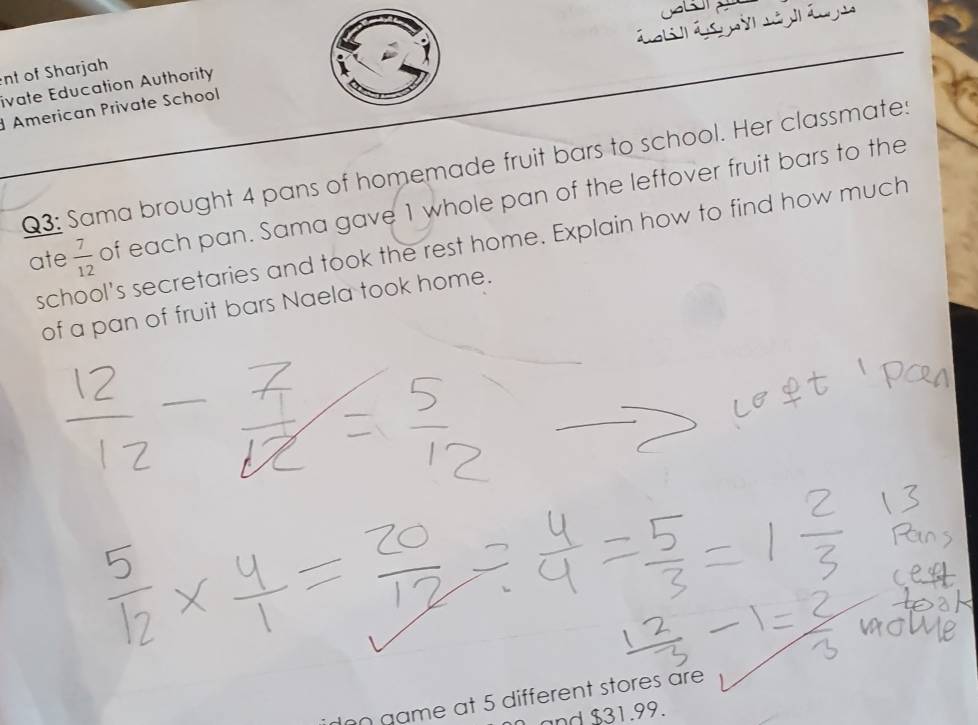 مدرسة الرشد الأمريكية الخاصة
nt of Sharjah
ivate Education Authority
American Private School
Q3: Sama brought 4 pans of homemade fruit bars to school. Her classmate
ate 7/12 of each pan. Sama gave 1 whole pan of the leftover fruit bars to the
school's secretaries and took the rest home. Explain how to find how much
of a pan of fruit bars Naela took home.
12/12 - 7/12 = 5/12 → left 1 pan
5/12 × 4/1 = 20/12 ÷ 4/4 = 5/3 = 1 2/3
Pans
left
1 2/3 - 1 = 2/3 took
game at 5 different stores are
and $31.99.